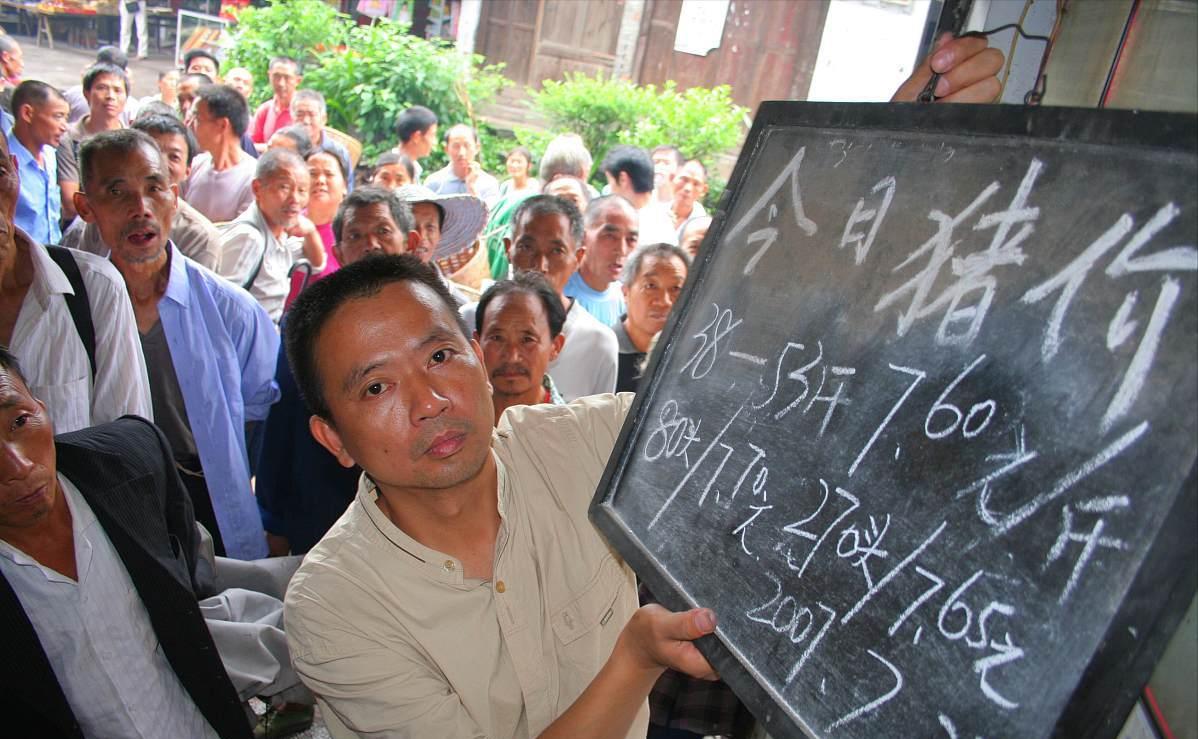 今日猪价
38-53斤 7.60元/斤
80头/7.70元 270头/7.65元
2007.7